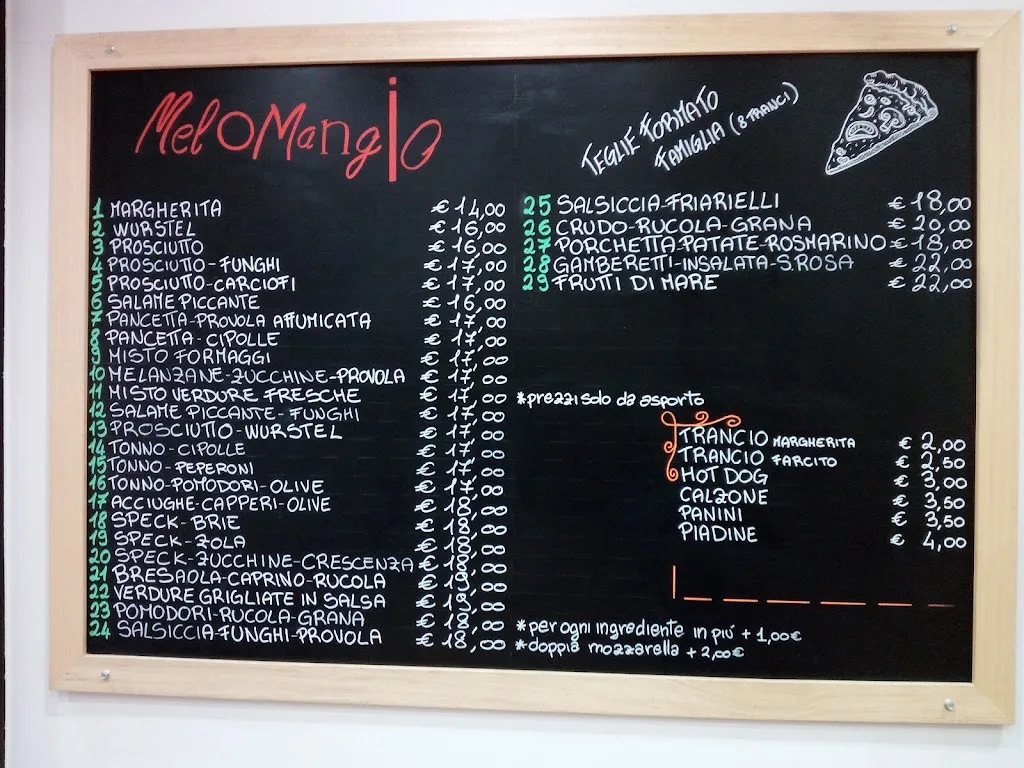 MeloMangio
1 MARGHERITA € 14,00
2 WURSTEL € 16,00
3 PROSCIUTTO € 16,00
4 PROSCIUTTO-FUNGHI € 17,00
5 PROSCIUTTO-CARCIOFI € 17,00
6 SALAME PICCANTE € 16,00
7 PANCETTA-PROVOLA AFFUMICATA € 17,00
8 PANCETTA-CIPOLLE € 17,00
9 MISTO FORMAGGI € 17,00
10 MELANZANE-ZUCCHINE-PROVOLA € 17,00
11 MISTO VERDURE FRESCHE € 17,00
12 SALAME PICCANTE-FUNGHI € 17,00
13 PROSCIUTTO-WURSTEL € 17,00
14 TONNO-CIPOLLE € 17,00
15 TONNO-PEPERONI € 17,00
16 TONNO-POMODORI-OLIVE € 17,00
17 ACCIUGHE-CAPPERI-OLIVE € 18,00
18 SPECK-BRIE € 18,00
19 SPECK-ZOLA € 18,00
20 SPECK-ZUCCHINE-CRESCENZA € 18,00
21 BRESAOLA-CAPRINO-RUCOLA €
22 VERDURE GRIGLIATE IN SALSA € 18,00
23 POMODORI-RUCOLA-GRANA € 18,00
24 SALSICCIA-FUNGHI-PROVOLA € 18,00
TEGLIE FORMATO
FAMIGLIA (8 TRANCI)
25 SALSICCIA-FRIARIELLI € 18,00
26 CRUDO-RUCOLA-GRANA € 20,00
27 PORCHETTA-PATATE-ROSMARINO € 18,00
28 GAMBERETTI-INSALATA-S.ROSA € 22,00
29 FRUTTI DI MARE € 22,00
*prezzi solo da asporto
TRANCIO MARGHERITA € 2,00
TRANCIO FARCITO € 2,50
HOT DOG € 3,00
CALZONE € 3,50
PANINI € 3,50
PIADINE € 4,00
*per ogni ingrediente in piú + 1,00€
*doppia mozzarella + 2,00€